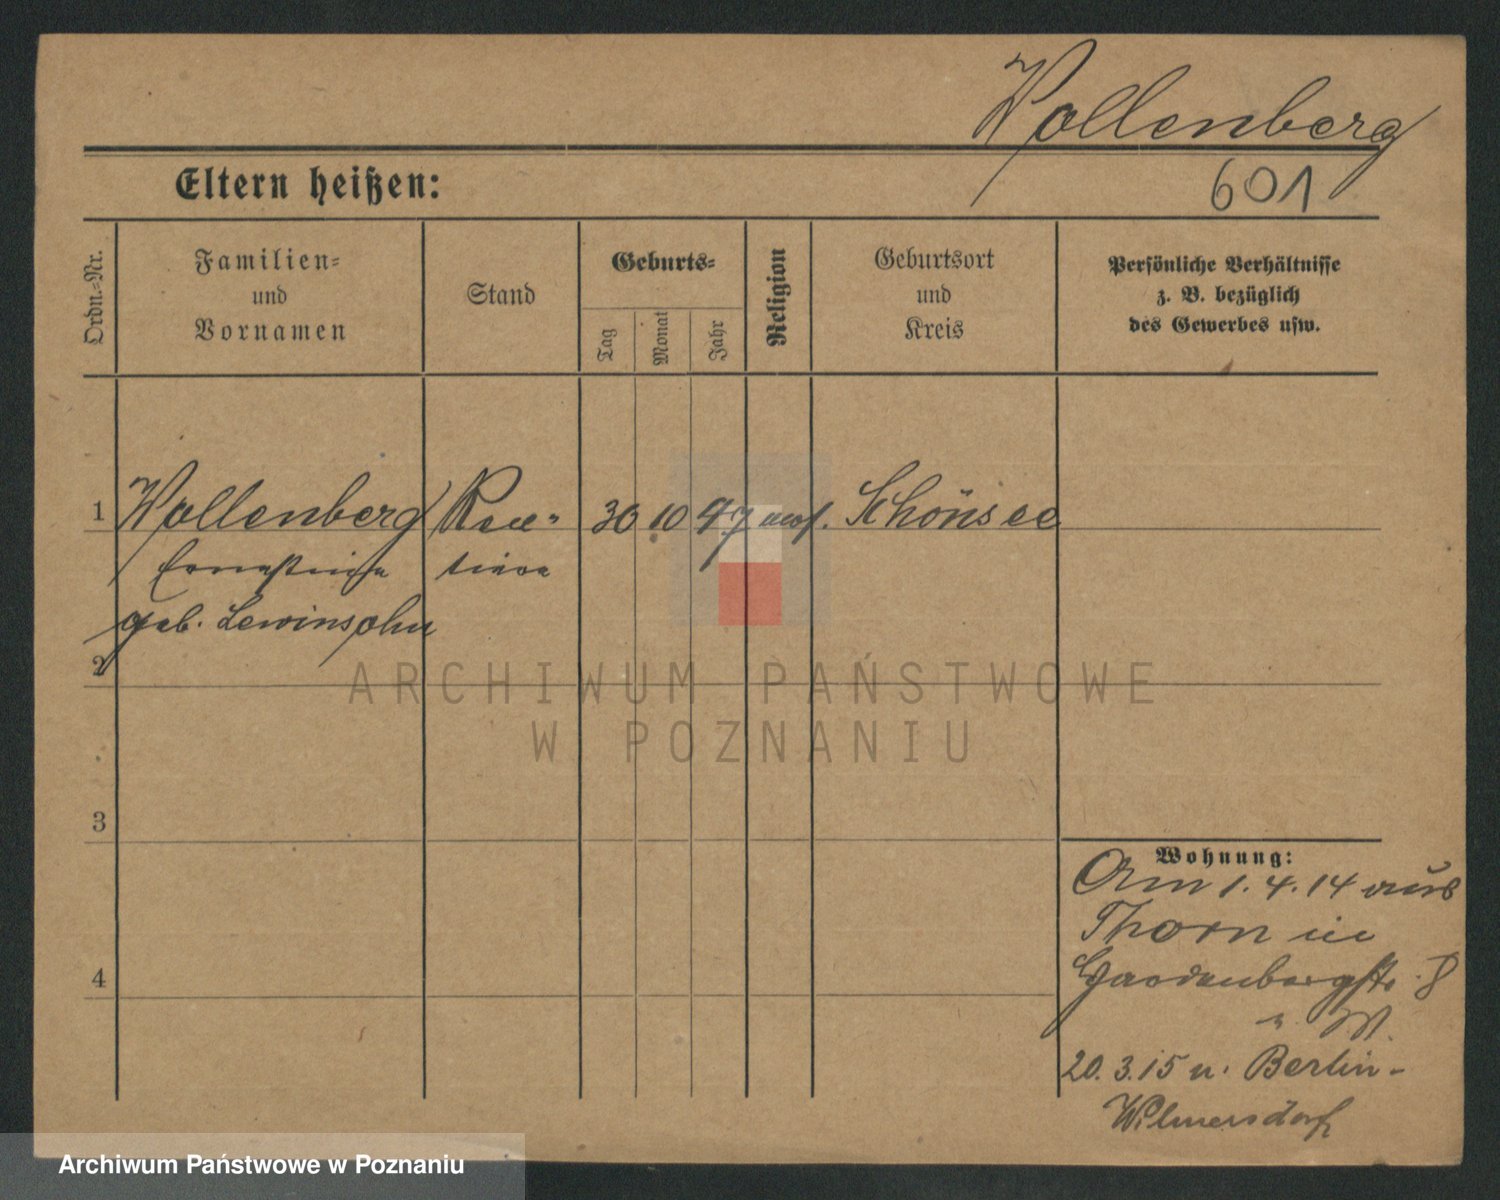 Wollenberg
601
Eltern heißen:
Ordn.-Nr.
Familien-
und
Vornamen
Stand
Geburts-
Tag
Monat
Jahr
Religion
Geburtsort
und
Kreis
Persönliche Verhältnisse
z. B. bezüglich
des Gewerbes usw.
1 Wollenberg Ren- 30 10 mos. Schönsee
Ernestine tiere
geb. Lewinsohn
2
3
4
Wohnung:
Am 1. 4. 14 aus
Thorn in
8
n. W.
20. 3. 15 n. Berlin-
Wilmersdorf
ARCHIWUM PAŃSTWOWE
W POZNANIU
Archiwum Państwowe w Poznaniu